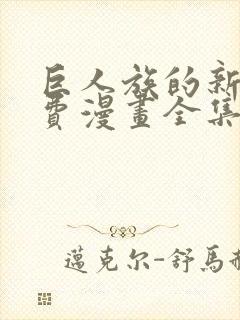 巨人族的新
費漫畫全集
邁克尔-舒馬赫